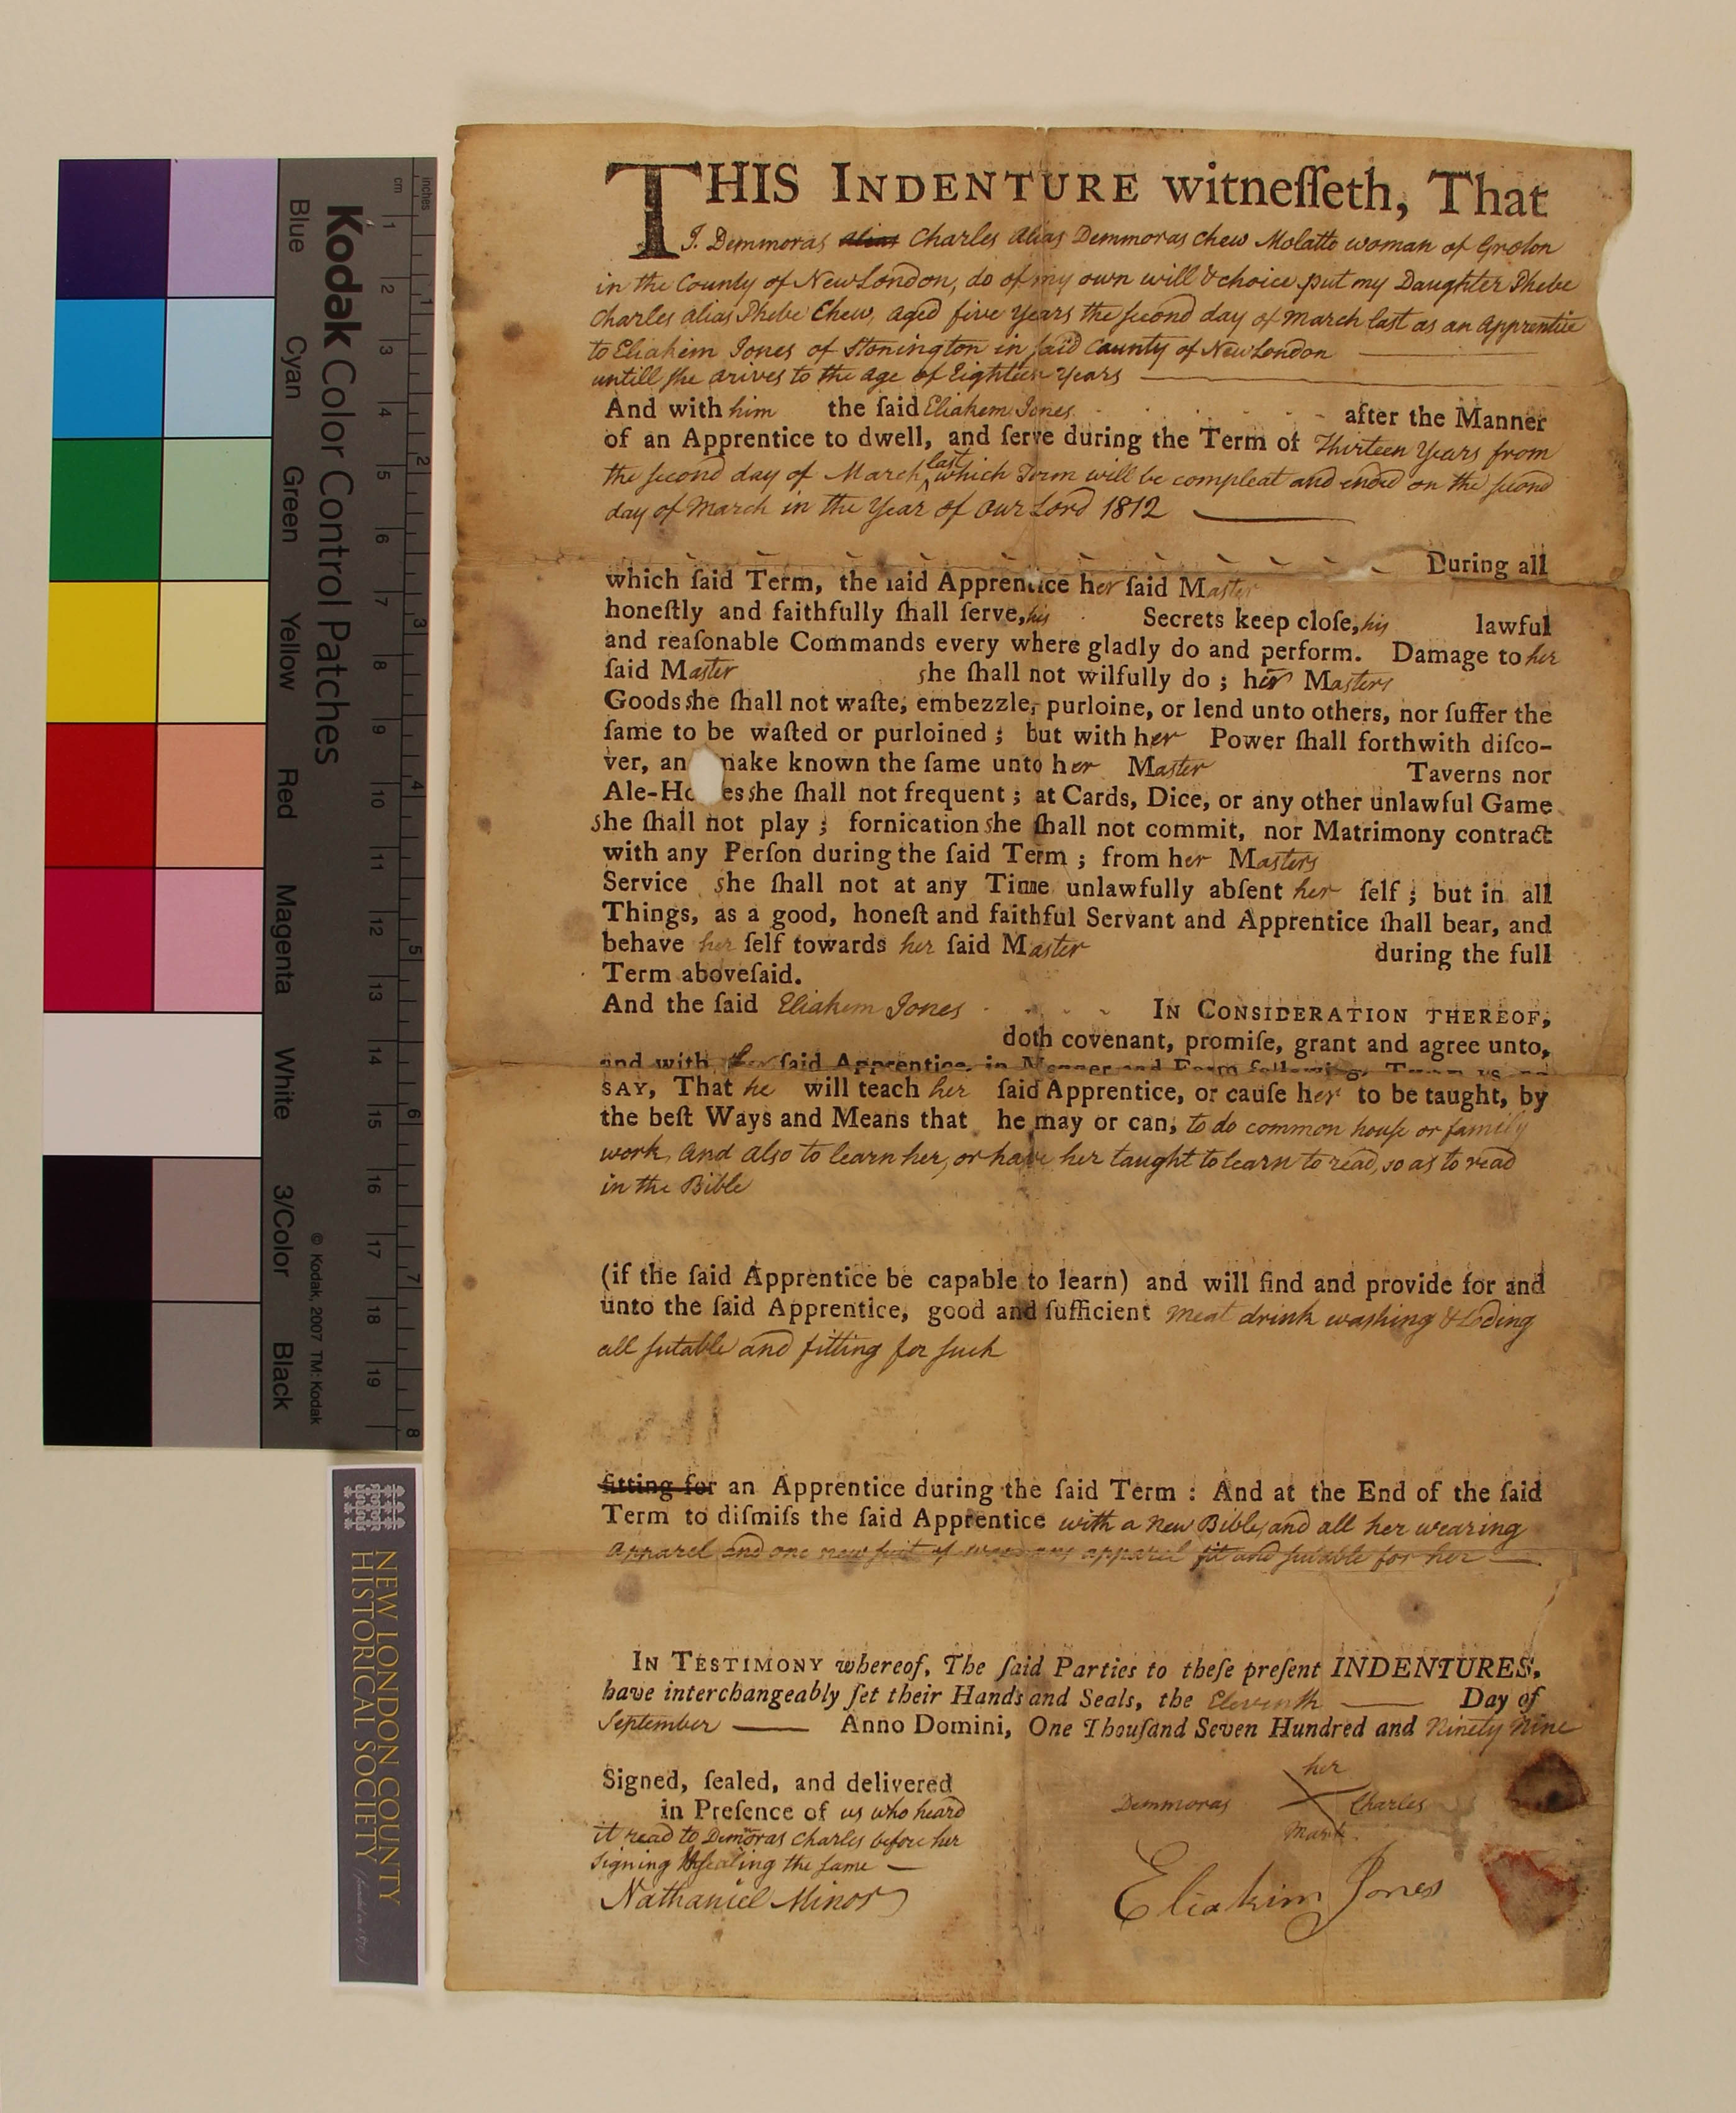 THIS INDENTURE witneſſeth, That
I. Demmoras alias Charles Alias Demmoras Chew Molatto woman of Groton
in the County of New London, do of my own will & choice put my Daughter Phebe
Charles alias Phebe Chew, aged five years the second day of March last as an Apprentice
to Eliakim Jones of Stonington in said County of New London
untill she arives to the age of Eighteen Years
And with him the ſaid Eliakem Jones after the Manner
of an Apprentice to dwell, and ſerve during the Term of Thirteen Years from
the second day of March last which Term will be compleat and ended on the second
day of March in the Year of Our Lord 1812
During all
which ſaid Term, the ſaid Apprentice her ſaid Master
honeſtly and faithfully ſhall ſerve, his Secrets keep cloſe, his lawful
and reaſonable Commands every where gladly do and perform. Damage to her
ſaid Master she ſhall not wilfully do ; her Masters
Goods she ſhall not waſte, embezzle, purloine, or lend unto others, nor ſuffer the
ſame to be waſted or purloined ; but with her Power ſhall forthwith diſco-
ver, an make known the ſame unto her Master Taverns nor
Ale-Ho es she ſhall not frequent ; at Cards, Dice, or any other unlawful Game
she ſhall not play ; fornication she ſhall not commit, nor Matrimony contract
with any Perſon during the ſaid Term ; from her Masters
Service she ſhall not at any Time unlawfully abſent her ſelf ; but in all
Things, as a good, honeſt and faithful Servant and Apprentice ſhall bear, and
behave her ſelf towards her ſaid Master during the full
Term aboveſaid.
And the ſaid Eliakem Jones IN CONSIDERATION THEREOF,
doth covenant, promiſe, grant and agree unto,
and with her ſaid Apprentice, in Manner and Form following, THAT IS TO
SAY, That he will teach her ſaid Apprentice, or cauſe her to be taught, by
the beſt Ways and Means that he may or can, to do common house or family
work, And also to learn her, or have her taught to learn to read, so as to read
in the Bible
(if the ſaid Apprentice be capable to learn) and will find and provide for and
unto the ſaid Apprentice, good and ſufficient meat drink washing & Loding
all sutable and fitting for such
fitting for an Apprentice during the ſaid Term : And at the End of the ſaid
Term to diſmiſs the ſaid Apprentice with a New Bible, and all her wearing
Apparel and one new suit of wearing apparel fit and suitable for her
IN TESTIMONY whereof, The ſaid Parties to theſe preſent INDENTURES,
have interchangeably ſet their Hands and Seals, the Eleventh Day of
September Anno Domini, One Thouſand Seven Hundred and Ninety Nine
Signed, ſealed, and delivered
in Preſence of us who heard
it read to Demoras Charles before her
signing & sealing the same
Nathaniel Minor
her
Demmoras X Charles
Mark
Eliakim Jones
Kodak Color Control Patches
Blue Cyan Green Yellow Red Magenta White 3/Color Black
© Kodak, 2007 TM: Kodak
inches 1 2 3 4 5 6 7 8
cm 1 2 3 4 5 6 7 8 9 10 11 12 13 14 15 16 17 18 19
NEW LONDON COUNTY
HISTORICAL SOCIETY